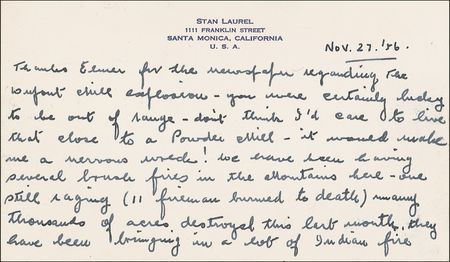 STAN LAUREL
1111 FRANKLIN STREET
SANTA MONICA, CALIFORNIA
U. S. A.
Nov. 27. '56.
Thanks Elmer for the newspaper regarding the
Dupont mill explosion - you were certainly lucky
to be out of range - don't think I'd care to live
that close to a Powder Mill - it would make
me a nervous wreck! we have been having
several brush fires in the Mountains here - one
still raging (11 fireman burned to death) many
thousands of acres destroyed this last month, they
have been bringing in a lot of Indian fire